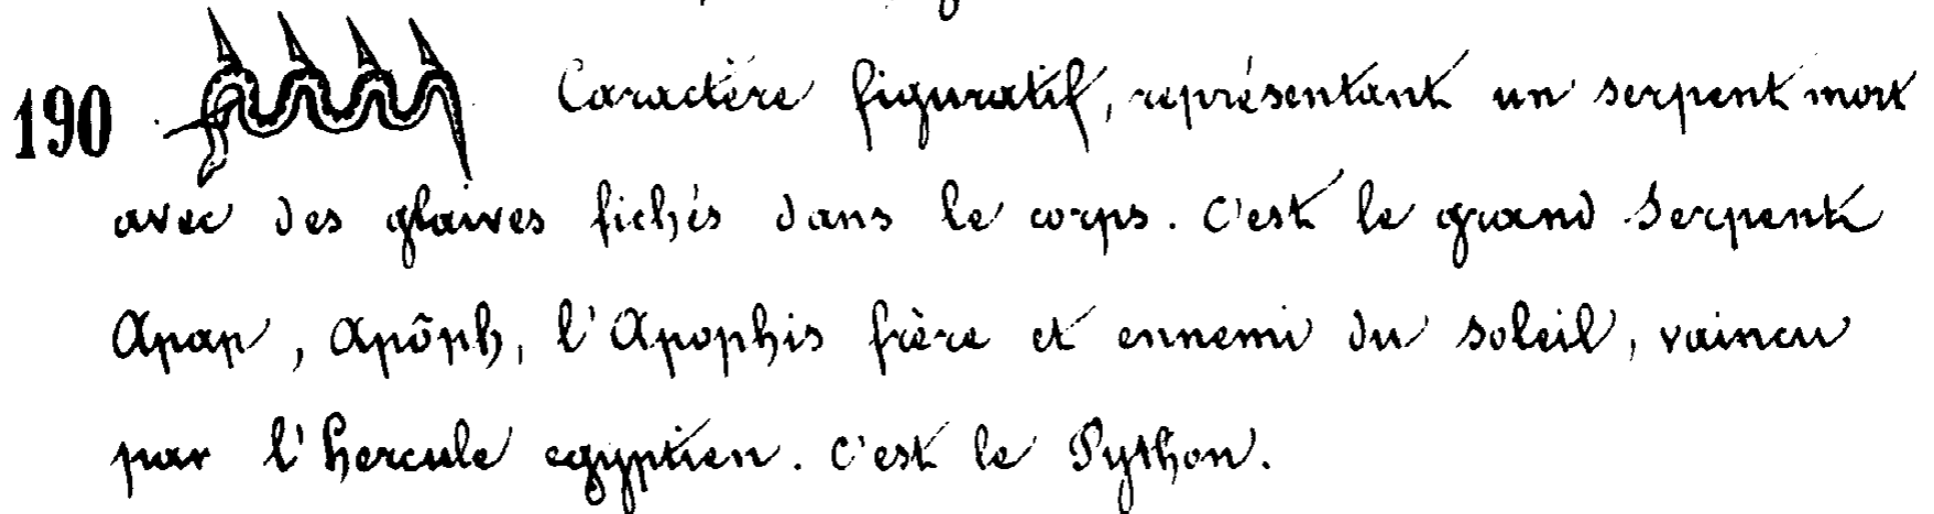 190 Caractère figuratif, représentant un serpent mort
avec des glaives fichés dans le corps. C'est le grand Serpent
Apap, Apôph, l'Apophis frère et ennemi du soleil, vaincu
par l'hercule egyptien. C'est le Python.